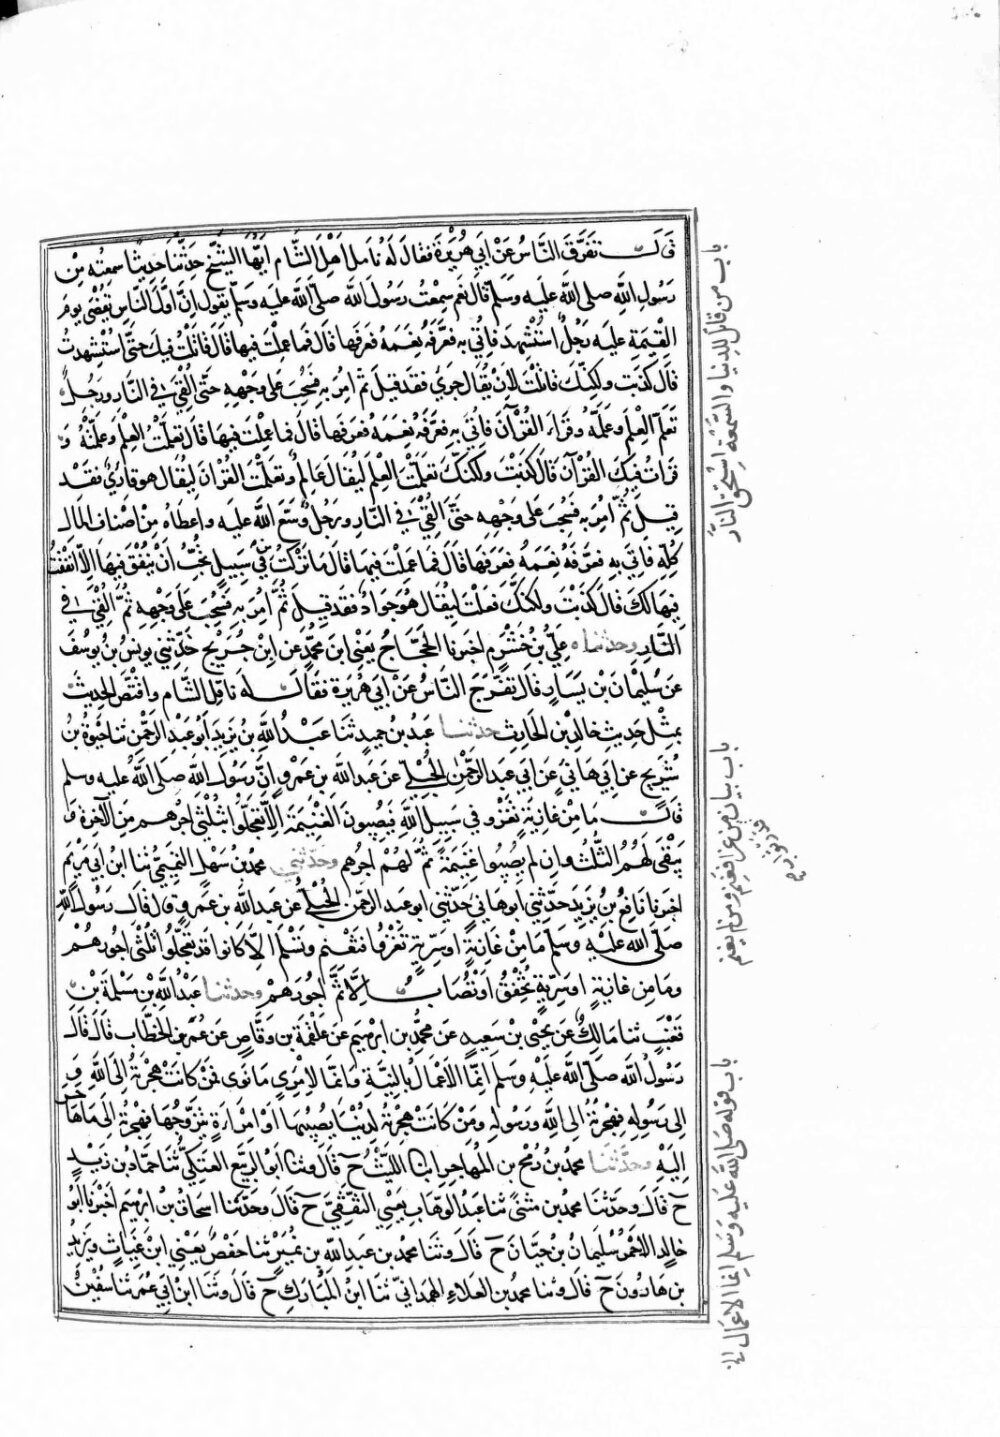 قَالَ تفرَّقَ النَّاسُ عَنْ اَبِي هُرَيْرَةَ فقَالَ لَهُ نَاتِل اَهْلِ الشَّام اَيُّهَا الشَّيْخ حَدِّثنَا حَدِيثًا سمعتَه مِنْ
رَسُولِ اللَّهِ صلى اللَّه عَلَيه وَسَلَّم قَالَ نَعَم سَمِعْتُ رَسُولَ اللَّه صلى اللَّه عَلَيه وَسَلَّم يَقُول اِنَّ اوَّلَ النَّاسِ يقضٰى يومَ
القِيٰمَةِ عَلَيه رَجُلٌ اسْتُشْهِدَ فَاُتِي به فعرَّفَه نِعَمَه فعرَفَها قَالَ فَما عمِلْتَ فيهَا قَالَ قَاتَلْتُ فِيكَ حَتَّى اسْتُشهِدتُ
قَالَ كَذَبْتَ ولكِنَّكَ قاتَلْتَ لِاَنْ يُقَالَ جَرِيءٌ فقَد قِيلَ ثم اُمِرَ بِهِ فَسُحِبَ عَلَى وَجْهِهِ حَتَّى اُلْقِيَ فِي النَّارِ ورَجُلٌ
تَعَلَّمَ العِلْمَ وعَلَّمَهُ وقرَاَ القُرْآنَ فَاُتِيَ بِهِ فعَرَّفَهُ نِعَمَهُ فعَرفَهَا قَالَ فَمَا عمِلْتَ فِيهَا قَالَ تَعَلَّمْتُ العِلْمَ وَعَلَّمْتُهُ وَ
قرَاْتُ فِيكَ القُرْآنَ قَالَ كَذَبْتَ ولَكِنَّكَ تعَلَّمْتَ العِلْمَ لِيُقَالَ عَالِمٌ وَتعَلَّمْتَ القُرْآنَ لِيُقَالَ هو قَارِئٌ فقَدْ
قِيلَ ثُمَّ اُمِرَ بِهِ فَسُحِبَ عَلَى وَجْهِهِ حَتَّى اُلْقِيَ فِي النَّارِ ورَجُلٌ وَسَّعَ اللَّهُ عَلَيهِ واعطَاهُ مِنْ اصْنافِ المَالِ
كُلِّهِ فَاُتِيَ بِهِ فعَرَّفَهُ نِعَمَهُ فعَرَفَهَا قَالَ فَمَا عَمِلْتَ فِيهَا قَالَ مَا تَرَكْتُ مِنْ سَبِيلٍ تُحِبُّ اَنْ يُنفَقَ فِيهَا اِلَّا انفَقْتُ
فِيهَا لَكَ قَالَ كَذَبْتَ ولكنَّكَ فَعَلْتَ لِيُقَالَ هُوَ جَوَادٌ فقَد قِيلَ ثُمَّ اُمِرَ بِهِ فَسُحِبَ عَلَى وَجْهِهِ ثُمَّ اُلْقِيَ فِي
النَّارِ وحدثناه عَلِيُّ بنُ خَشْرَمٍ اخبَرنَا الحَجَّاجُ يَعْنِي ابنَ مُحَمَّدٍ عَن ابنِ جُرَيْجٍ حَدَّثَنِي يونسُ بنُ يوسُفَ
عَن سُلَيْمَانَ بْنِ يَسَارٍ قَالَ تفَرَّجَ النَّاسُ عَنْ اَبي هُرَيرَةَ فَقَالَ لَه نَاتِل الشَّام واقْتَصَّ الحَدِيثَ
بِمِثْلِ حَدِيثِ خَالِدِ بْنِ الحَارِثِ حدثنا عَبدُ بنُ حُمَيدٍ ثنا عَبْدُ اللَّهِ بنُ يَزِيدَ اَبُو عَبْدِ الرَّحْمٰنِ ثنا حَيْوَةُ بنُ
شُرَيْحٍ عَن اَبِي هَانِئٍ عَنْ اَبِي عَبدِ الرَّحْمٰنِ الحُبُلِيِّ عَن عَبدِ اللَّه بنِ عَمْرٍو اِنَّ رَسُولَ اللَّهِ صَلى اللَّه عليه وسلم
قَالَ مَا مِنْ غازِيَةٍ تَغْزُو فِي سَبِيلِ اللَّهِ فَيُصِيبُونَ الغَنِيمَةَ اِلَّا تَعَجَّلُوا ثُلُثَيْ اجرِهِم مِنَ الآخِرَةِ وَ
يَبْقَى لَهُمُ الثُّلُثُ وان لم يُصِيبُوا غَنِيمَةً تَمَّ لَهُمْ اجرُهم وحَدَّثَنِي محمدُ بنُ سَهْلٍ التَّمِيمِيُّ ثنا ابنُ اَبِي مَرْيَمَ
اخبَرنَا نَافِعُ بنُ يَزِيدَ حَدَّثَنِي ابوهَانِئٍ حَدَّثَنِي ابو عَبدِ الرَّحمٰنِ الحُبُلِيُّ عَن عَبدِ اللَّه بنِ عَمرٍو قَالَ قَالَ رَسُولُ اللَّهِ
صَلَّى اللَّه عَلَيهِ وسَلَّمَ مَا مِنْ غَازِيَةٍ اوسَرِيَّةٍ تَغْزُو فَتَغْنَمُ وتَسْلَمُ اِلَّا كَانُوا قَد تَعَجَّلُوا ثُلُثَيْ اجُورِهُمْ
ومَا مِن غَازِيَةٍ اوسَرِيَّةٍ تُخْفِقُ اَوْ تُصَابُ اِلَّا تَمَّ اُجُورُهم وحدثنا عَبْدُ اللَّهِ بنُ مَسْلَمَةَ بْنِ
قَعْنَبٍ ثنا مَالِكٌ عَن يَحْيَى بْنِ سَعِيدٍ عَن مُحَمَّدِ بنِ ابرٰهِيم عَن عَلْقَمَةَ بن وَقَّاصٍ عَن عُمَرَ بنِ الخَطَّابِ قَالَ قَالَ
رَسُولُ اللَّه صَلَّى اللَّه عَلَيْهِ وَسَلم اِنَّمَا الاَعْمَالُ بِالنِّيَّةِ وَانَّمَا لِامْرِئٍ مَا نَوَى فمَنْ كَانَتْ هِجْرَتُهُ اِلَى اللَّهِ وَ
اِلى رَسُولِهِ فهِجْرَتُهُ اِلى اللَّهِ وَرَسُولِهِ وَمَنْ كَانَتْ هِجْرَتُهُ لِدُنْيَا يُصِيبُهَا اَوْ امْرَاَةٍ يتَزَوَّجُهَا فهِجْرَتُهُ اِلَى مَا هَاجَرَ
اِلَيْهِ وحَدَّثنا محمدُ بنُ رُمْحِ بنِ المُهَاجِرِ انا اللَّيْثُ ح قَالَ وثنا اَبُو الرَّبِيعِ العَتَكِيُّ ثنا حَمَّادُ بنُ زَيدٍ
ح قَالَ وحَدَّثنَا محمد بن مثنىً ثنا عَبدُ الوَهّابِ يعْنِي الثَّقَفِيَّ ح قَالَ وحَدَّثنَا اسحَاقُ بن ابرٰهِيم اَخْبَرنَا اَبُو
خَالِدٍ الاَحْمَرُ سُلَيمَانُ بنُ حَيَّانَ ح قَالَ وثنا محمد بن عَبدِ اللَّهِ بن نُمَيْرٍ ثنا حَفْصٌ يَعْنِي ابنَ غِيَاثٍ وَيَزِيدُ
بن هَارُونَ ح قَالَ وثنا محمدُ بن العَلَاءِ الهَمدَانيّ ثنا ابنُ المُبَارَكِ ح قَالَ وَثنا ابنُ اَبِي عُمَرَ ثنا سُفْيٰنُ
باب من قاتل للدنيا والسّمعة استحق النار
باب بيان من غزا فغنم ومن لم يغنم
باب قوله صلى الله عليه وسلم انما الاعمال